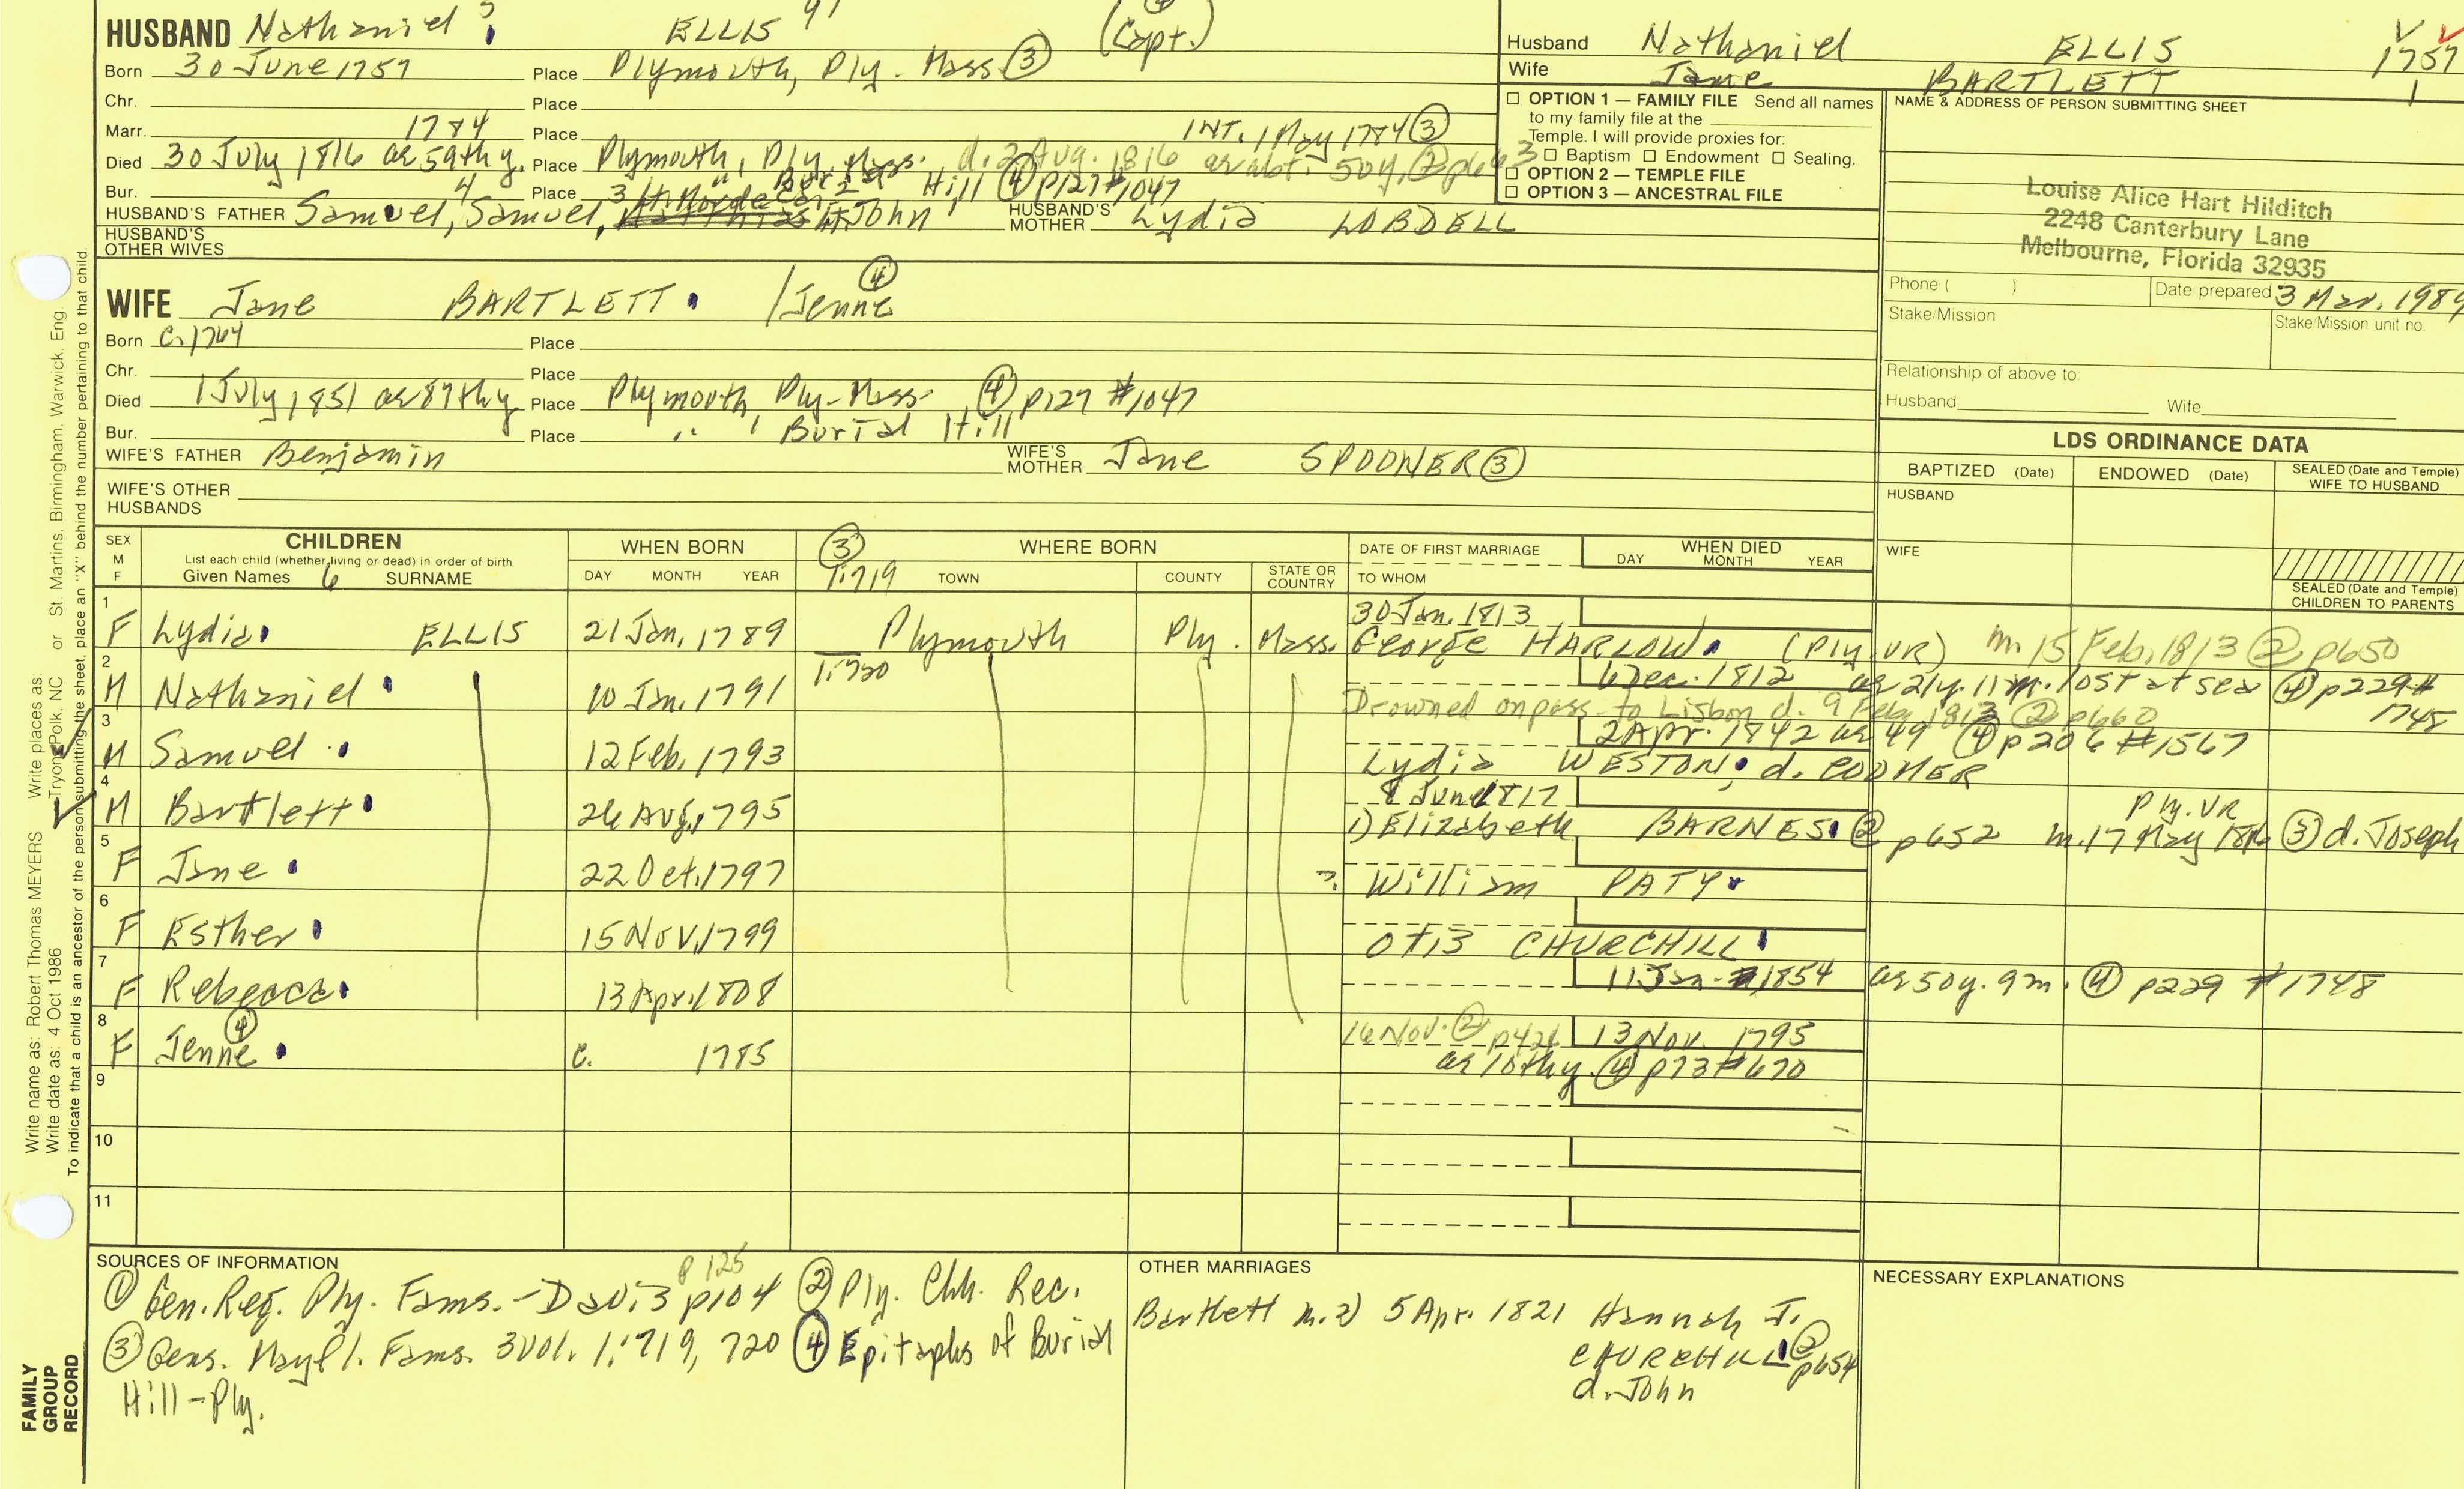 HUSBAND Nathaniel ELLIS (Capt.)
Born 30 June 1757 Place Plymouth, Ply. Mass. ③
Chr. Place
Marr. 1784 Place INT. 1 May 1784 ③
Died 30 July 1816 ae 59thy. Place Plymouth, Ply. Mass. d. 2 Aug. 1816 ae abt. 50y. ② p663
Bur. Place " Burial Hill ④ p127 #1047
HUSBAND'S FATHER Samuel, Samuel, Lt. John HUSBAND'S MOTHER Lydia LOBDELL
HUSBAND'S OTHER WIVES
Husband Nathaniel ELLIS 1757
Wife Jane BARTLETT 1
☐ OPTION 1 — FAMILY FILE Send all names
to my family file at the
Temple. I will provide proxies for:
☐ Baptism ☐ Endowment ☐ Sealing.
☐ OPTION 2 — TEMPLE FILE
☐ OPTION 3 — ANCESTRAL FILE
NAME & ADDRESS OF PERSON SUBMITTING SHEET
Louise Alice Hart Hilditch
2248 Canterbury Lane
Melbourne, Florida 32935
Phone ( ) Date prepared 3 Mar. 1989
Stake/Mission Stake/Mission unit no.
Relationship of above to:
Husband Wife
WIFE Jane BARTLETT /Jenne ④
Born C. 1764 Place
Chr. Place
Died 1 July 1851 ae 87thy Place Plymouth, Ply-Mass. ④ p127 #1047
Bur. Place " ' Burial Hill
WIFE'S FATHER Benjamin WIFE'S MOTHER Jane SPOONER ③
WIFE'S OTHER HUSBANDS
LDS ORDINANCE DATA
BAPTIZED (Date) ENDOWED (Date) SEALED (Date and Temple) WIFE TO HUSBAND
HUSBAND
WIFE
SEALED (Date and Temple) CHILDREN TO PARENTS
SEX M F
CHILDREN
List each child (whether living or dead) in order of birth
Given Names SURNAME
WHEN BORN
DAY MONTH YEAR
③ 1:719
WHERE BORN
TOWN COUNTY STATE OR COUNTRY
DATE OF FIRST MARRIAGE
TO WHOM
WHEN DIED
DAY MONTH YEAR
30 Jan. 1813
1 F Lydia ELLIS 21 Jan. 1789 Plymouth Ply. Mass. George HARLOW (Ply. VR) m. 15 Feb. 1813 ② p650
6 Dec. 1812 ae 21y. 11m. lost at sea ④ p229 # 1745
2 M Nathaniel 10 Jan. 1791 1:720 Drowned on pass. to Lisbon d. 9 Feb. 1813 ② p660
2 Apr. 1842 ae 49 ④ p206 #1567
3 M Samuel 12 Feb. 1793 Lydia WESTON, d. COOMER
8 June 1817 Ply. VR
4 M Bartlett 26 Aug. 1795 1) Elizabeth BARNES ② p652 m. 17 May ③ d. Joseph
5 F Jane 22 Oct. 1797 ?. William PATY
6 F Esther 15 Nov. 1799 Otis CHURCHILL
11 Jan. 1854 ae 50y. 9m. ④ p229 #1748
7 F Rebecca 13 Apr. 1808
16 Nov. ② p426 13 Nov. 1795
8 F Jenne ④ c. 1785 ae 10thy. ④ p73 #670
9
10
11
SOURCES OF INFORMATION p125
① Gen. Reg. Ply. Fams. - Davis p104 ② Ply. Chh. Rec.
③ Gens. Mayfl. Fams. 3 vol. 1:719, 720 ④ Epitaphs of Burial
Hill - Ply.
OTHER MARRIAGES
Bartlett m. 2) 5 Apr. 1821 Hannah J.
CHURCHILL ② p654
d. John
NECESSARY EXPLANATIONS
Write name as: Robert Thomas MEYERS Write places as: Tryon, Polk, NC or St. Martins, Birmingham, Warwick, Eng.
Write date as: 4 Oct 1986
To indicate that a child is an ancestor of the person submitting the sheet, place an "X" behind the number pertaining to that child.
FAMILY
GROUP
RECORD